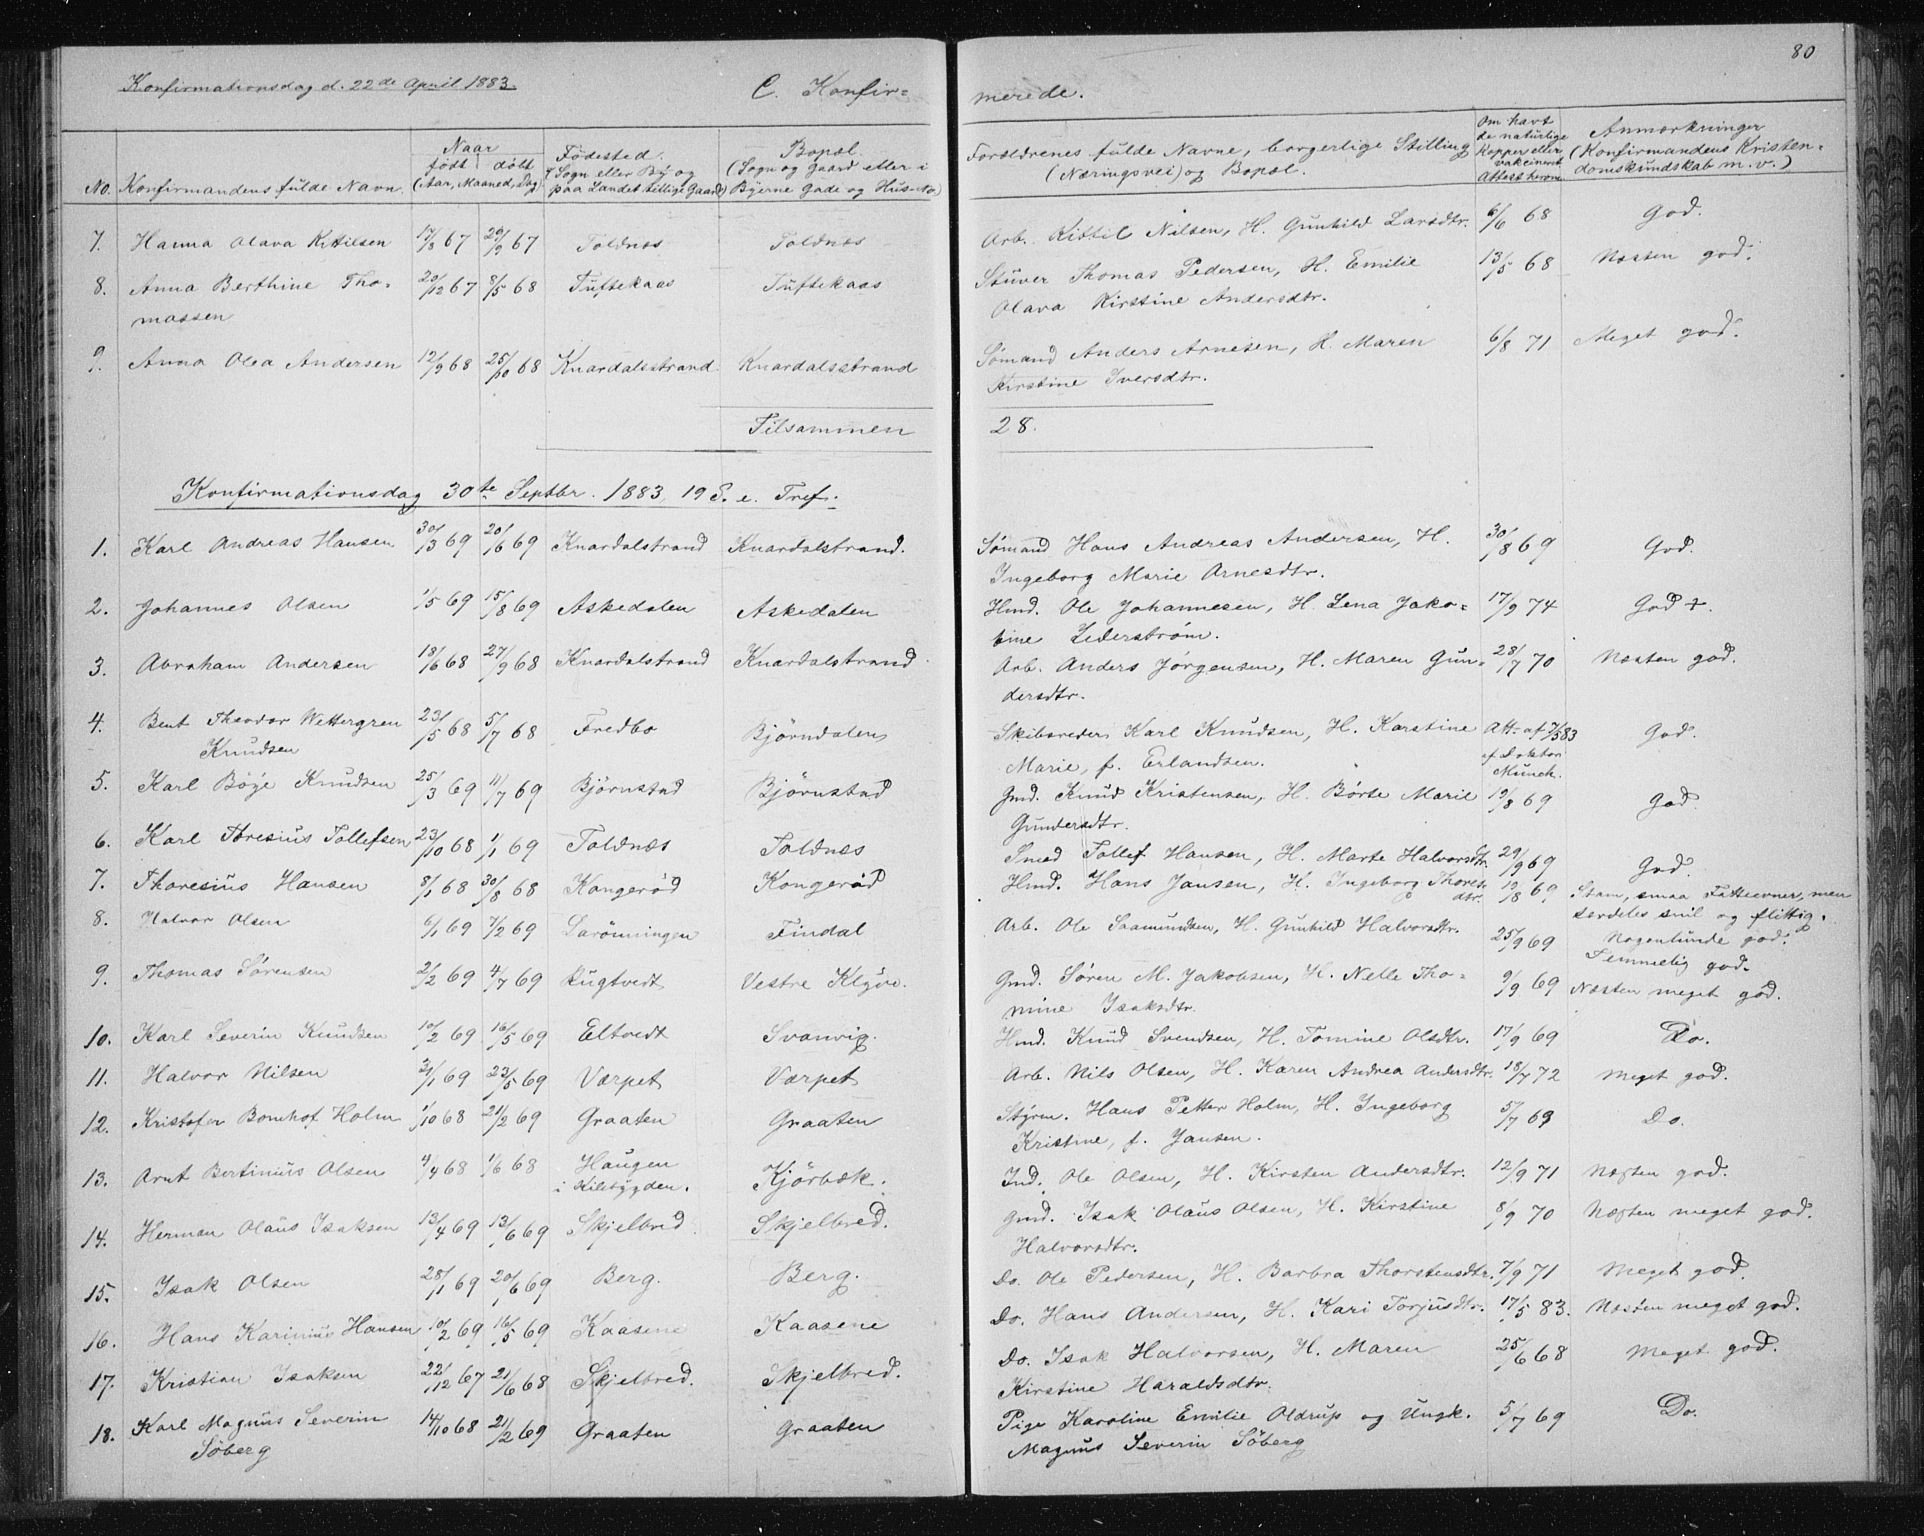 80
Konfirmationsdag d. 22de April 1883.
C. Konfir= merede.
No. Konfirmandens fulde Navn.
Naar
født døbt
(Aar, Maaned, Dag)
Fødested.
(Sogn eller By og
paa Landet tillige Gaard)
Bopæl.
(Sogn og Gaard eller i
Byerne Gade og Hus-No)
Forældrenes fulde Navne, borgerlige Stilling
(Næringsvei) og Bopæl.
Om havt
de naturlige
Kopper eller
vakcineret
Attest herom
Anmærkninger
(Konfirmandens Kristen=
domskundskab m. v.)
7. Hanna Olava Kittilsen 17/8 67 29/9 67 Toldnæs Toldnæs Arb. Kittil Nilsen, H. Gunhild Larsdtr. 6/6 68 God.
8. Anna Berthine Tho= 20/12 67 8/5 68 Tuftekaas Tuftekaas Stuver Thomas Pedersen, H. Emilie 13/5 68 Næsten god.
massen Olava Kirstine Andersdtr.
9. Anna Olea Andersen 12/9 68 25/10 68 Knardalsstrand Knardalsstrand Sømand Anders Arnesen, H. Maren 6/8 71 Meget god.
Kirstine Iversdtr.
Tilsammen 28.
Konfirmationsdag 30te Septbr. 1883, 19 S. e. Tref.
1. Karl Andreas Hansen 30/3 69 20/6 69 Knardalstrand Knardalstrand. Sømand Hans Andreas Andersen, H. 30/8 69 God.
Ingeborg Marie Arnesdtr.
2. Johannes Olsen 1/5 69 15/8 69 Askedalen Askedalen Hmd. Ole Johannesen, H. Lena Jako= 17/9 74 God +.
bine Lederstrøm.
3. Abraham Andersen 18/6 68 27/9 68 Knardalstrand Knardalstrand. Arb. Anders Jørgensen, H. Maren Gun= 28/7 70 Næsten god.
dersdtr.
4. Bent Theodor Wettergren 23/5 68 5/7 68 Fredbo Bjørndalen Skibsreder Karl Knudsen, H. Karstine Att. af 7/5 83 God.
Knudsen Marie, f. Erlandsen. af Doktor
Munch.
5. Karl Böye Knudsen 25/3 69 11/7 69 Bjørnstad Bjørnstad Gmd. Knud Kristensen, H. Børte Marie 19/8 69 God.
Gundersdtr.
6. Karl Thoresius Tollefsen 23/10 68 1/1 69 Toldnæs Toldnæs Smed Tollef Hansen, H. Marte Halvorsdtr. 29/9 69 God.
7. Thoresius Hansen 8/1 68 30/8 68 Kongerød Kongerød Hmd. Hans Jansen, H. Ingeborg Thores= 19/8 69 Stam, smaa Fatteevner, men
dtr. særdeles snil og flittig.
8. Halvor Olsen 6/1 69 7/2 69 Larönningen Findal Arb. Ole Saamundsen, H. Gunhild Halvorsdtr. 25/9 69 Nogenlunde god.
Temmelig god.
9. Thomas Sørensen 2/2 69 4/7 69 Rugtvedt Vestre Klyve. Gmd. Søren M. Jakobsen, H. Nelle Tho= 9/9 69 Næsten meget god.
mine Isaksdtr.
10. Karl Severin Knudsen 10/2 69 16/5 69 Eltvedt Svanvig. Hmd. Knud Svendsen, H. Tomine Olsdtr. 17/9 69 Do.
11. Halvor Nilsen 31/1 69 23/5 69 Værpet Værpet Arb. Nils Olsen, H. Karen Andrea Andersdtr. 18/7 72 Meget god.
12. Kristofer Bomhof Holm 1/10 68 21/2 69 Graaten Graaten Styrm. Hans Petter Holm, H. Ingeborg 5/7 69 Do.
Kristine, f. Jansen.
13. Arnt Bertinius Olsen 4/4 68 1/6 68 Haugen Kjørbæk. Ind. Ole Olsen, H. Kirsten Andersdtr. 12/9 71 Næsten god.
i Kilebygden.
14. Herman Olaus Isaksen 13/4 69 13/6 69 Skjelbred Skjelbred. Gmd. Isak Olaus Olsen, H. Kirstine 8/9 70 Næsten meget god.
Halvorsdtr.
15. Isak Olsen 28/1 69 20/6 69 Berg. Berg. Do. Ole Pedersen, H. Barbra Thorstensdtr. 7/9 71 Meget god.
16. Hans Karinius Hansen 10/2 69 16/5 69 Kaasene Kaasene Do. Hans Andersen, H. Kari Torjusdtr. 17/5 83. Næsten meget god.
17. Kristian Isaksen 22/12 67 21/6 68 Skjelbred. Skjelbred. Do. Isak Halvorsen, H. Maren 25/6 68 Meget god.
Kirstine Haraldsdtr.
18. Karl Magnus Severin 14/10 68 21/2 69 Graaten Graaten Pige Karoline Emilie Oldrup og Ungk. 5/7 69 Do.
Søberg Magnus Severin Søberg